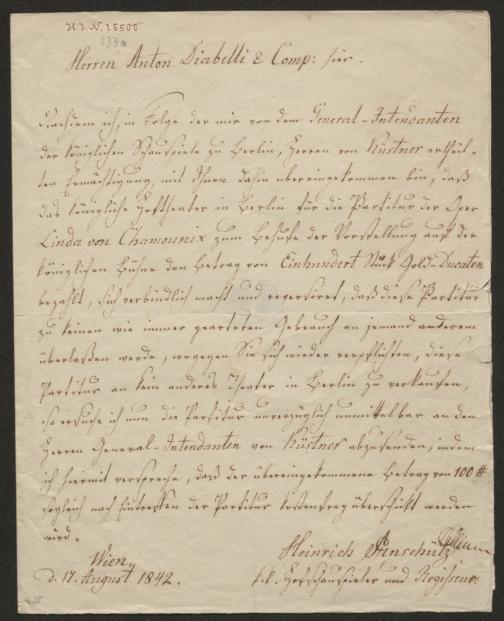 H.I.N. 25500
233a
Herren Anton Diabelli & Comp: hier.
Nachdem ich, in Folge der mir von dem General-Intendanten
der königlichen Schauspiele zu Berlin, Herren von Küstner ertheil-
ten Ermächtigung, mit Ihnen dahin übereingekommen bin, daß
das königliche Hoftheater in Berlin für die Partitur der Oper
Linda von Chamounix zum Behufe der Vorstellung auf der
königlichen Bühne den Betrag von Einhundert Stück Gold-Ducaten
bezahlt, sich verbindlich macht und reversiret, daß diese Partitur
zu keinen wie immer gearteten Gebrauch an jemand anderem
überlaßen werde, wogegen Sie sich wieder verpflichten, diese
Partitur an kein anderes Theater in Berlin zu verkaufen,
so ersuche ich nun die Partitur unverzüglich unmittelbar an den
Herren General-Intendanten von Küstner abzusenden, indem
ich hiermit verspreche, daß der übereingekommene Betrag von 100 #
sogleich nach Eintreffen der Partitur kostenfrey überschickt werden
wird.
Wien
d. 17. August 1842.
Heinrich Anschütz
k.k. Hofschauspieler und Regisseur